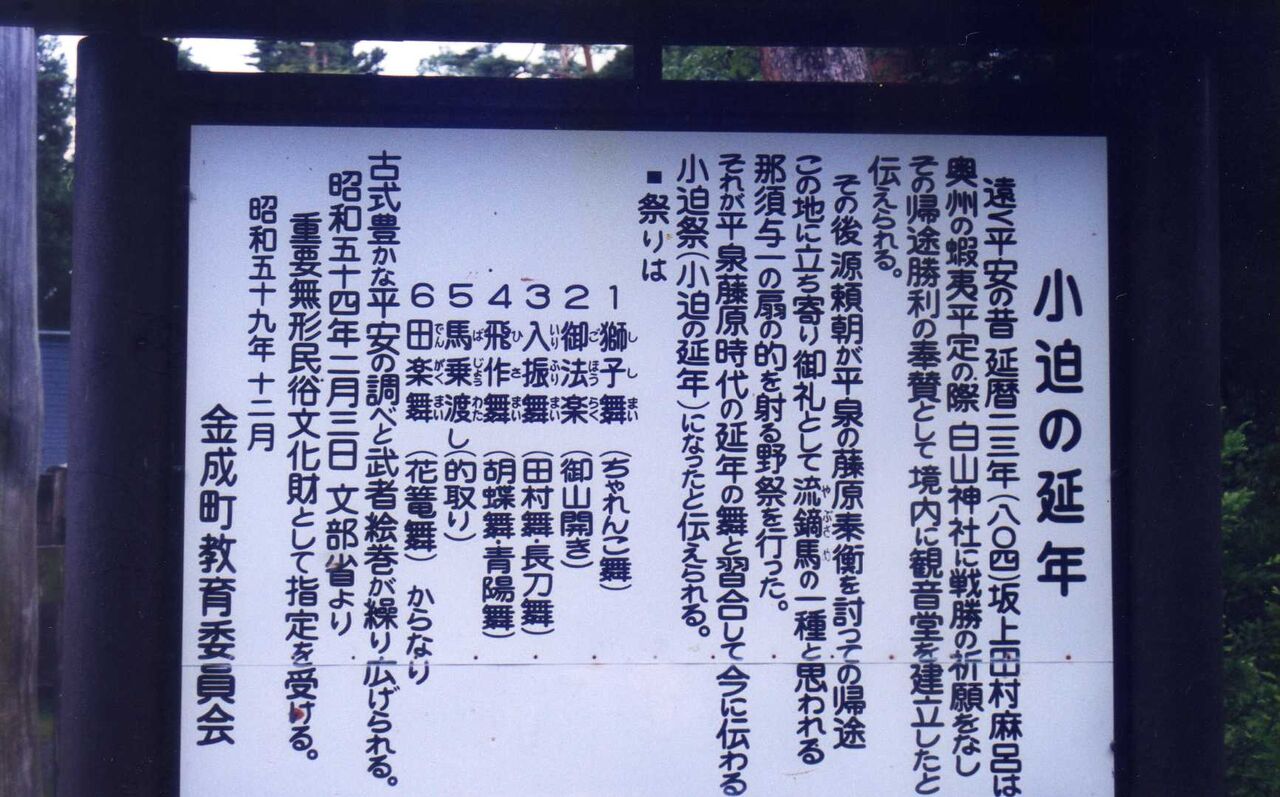 小迫の延年
遠く平安の昔 延暦二三年(八〇四)坂上田村麻呂は
奥州の蝦夷平定の際 白山神社に戦勝の祈願をなし
その帰途勝利の奉賛として 境内に観音堂を建立したと
伝えられる。
その後源頼朝が平泉の藤原秦衡を討っての帰途
この地に立ち寄り御礼として 流鏑馬の一種と思われる
やぶさめ
那須与一の扇の的を射る野祭を行った。
それが平泉藤原時代の延年の舞と習合して 今に伝わる
小迫祭(小迫の延年)になったと伝えられる。
■祭りは
1 獅子舞 (ちゃれんこ舞)
ししまい
2 御法楽 (御山開き)
ごほうらく
3 入振舞 (田村舞・長刀舞)
いりふりまい
4 飛作舞 (胡蝶舞・青陽舞)
ひさまい
5 馬乗渡し(的取り)
ばじょうわた
6 田楽舞 (花篭舞) からなり
でんがくまい
古式豊かな平安の調べと武者絵巻が繰り広げられる。
昭和五十四年二月三日 文部省より
重要無形民俗文化財として 指定を受ける。
昭和五十九年十二月
金成町教育委員会